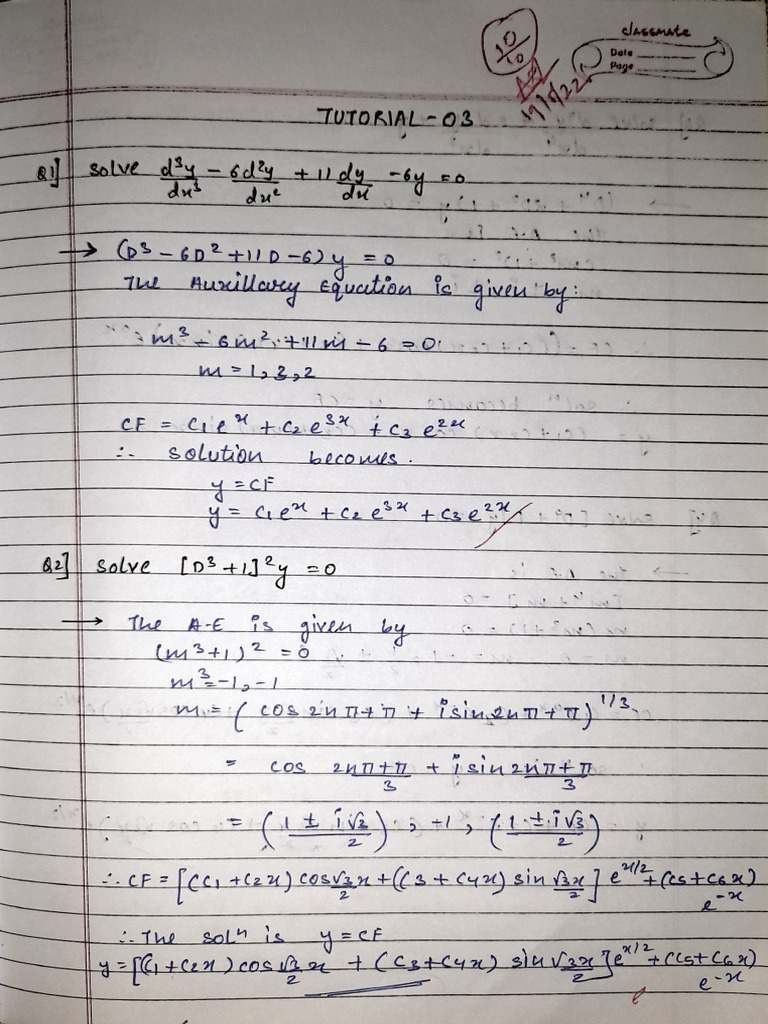 10/10
classmate
Date
Page
19/5/22
TUTORIAL-03
Q1] solve d³y/dx³ - 6d²y/dx² + 11 dy/dx - 6y = 0
→ (D³ - 6D² + 11D - 6) y = 0
The Auxillary Equation is given by:
m³ - 6m² + 11m - 6 = 0
m = 1, 3, 2
CF = C1 e^x + C2 e^3x + C3 e^2x
∴ solution becomes.
y = CF
y = C1 e^x + C2 e^3x + C3 e^2x
Q2] solve [D³+1]² y = 0
→ The A-E is given by
(m³+1)² = 0
m³ = -1, -1
m = ( cos 2nπ+π + i sin 2nπ+π )^1/3
= cos 2nπ+π/3 + i sin 2nπ+π/3
= (1 ± i√3/2), -1, (1 ± i√3/2)
∴ CF = [(C1+C2x) cos √3/2 x + (C3+C4x) sin √3x/2] e^x/2 + (C5+C6x) e^-x
∴ The solⁿ is y = CF
y = [(C1+C2x) cos √3/2 x + (C3+C4x) sin √3x/2] e^x/2 + (C5+C6x) e^-x